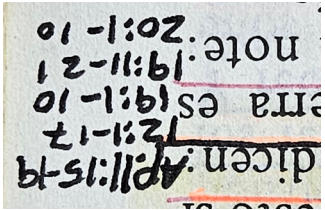 dicen:
erra es
note:
Ap. 11:15-19
12:1-17
19:1-10
19:11-21
20:1-10